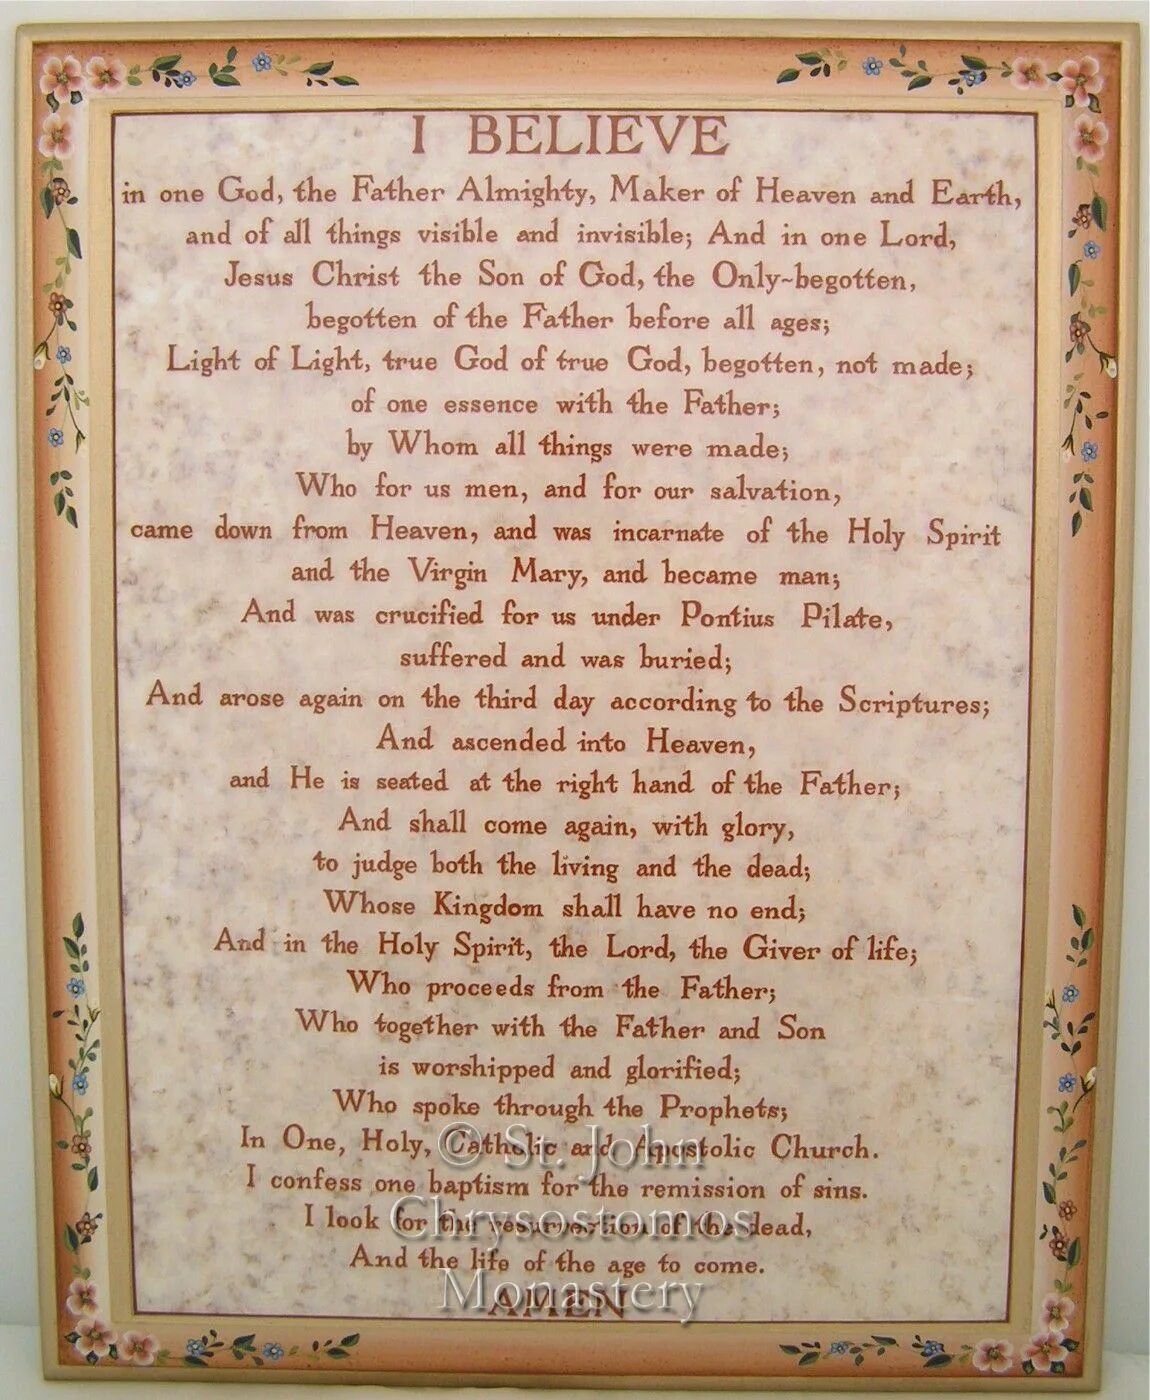 I BELIEVE
in one God, the Father Almighty, Maker of Heaven and Earth,
and of all things visible and invisible; And in one Lord,
Jesus Christ the Son of God, the Only~begotten,
begotten of the Father before all ages;
Light of Light, true God of true God, begotten, not made;
of one essence with the Father;
by Whom all things were made;
Who for us men, and for our salvation,
came down from Heaven, and was incarnate of the Holy Spirit
and the Virgin Mary, and became man;
And was crucified for us under Pontius Pilate,
suffered and was buried;
And arose again on the third day according to the Scriptures;
And ascended into Heaven,
and He is seated at the right hand of the Father;
And shall come again, with glory,
to judge both the living and the dead;
Whose Kingdom shall have no end;
And in the Holy Spirit, the Lord, the Giver of life;
Who proceeds from the Father;
Who together with the Father and Son
is worshipped and glorified;
Who spoke through the Prophets;
In One, Holy, Catholic and Apostolic Church.
I confess one baptism for the remission of sins.
I look for the resurrection of the dead,
And the life of the age to come.
AMEN
© St. John
Chrysostomos
Monastery